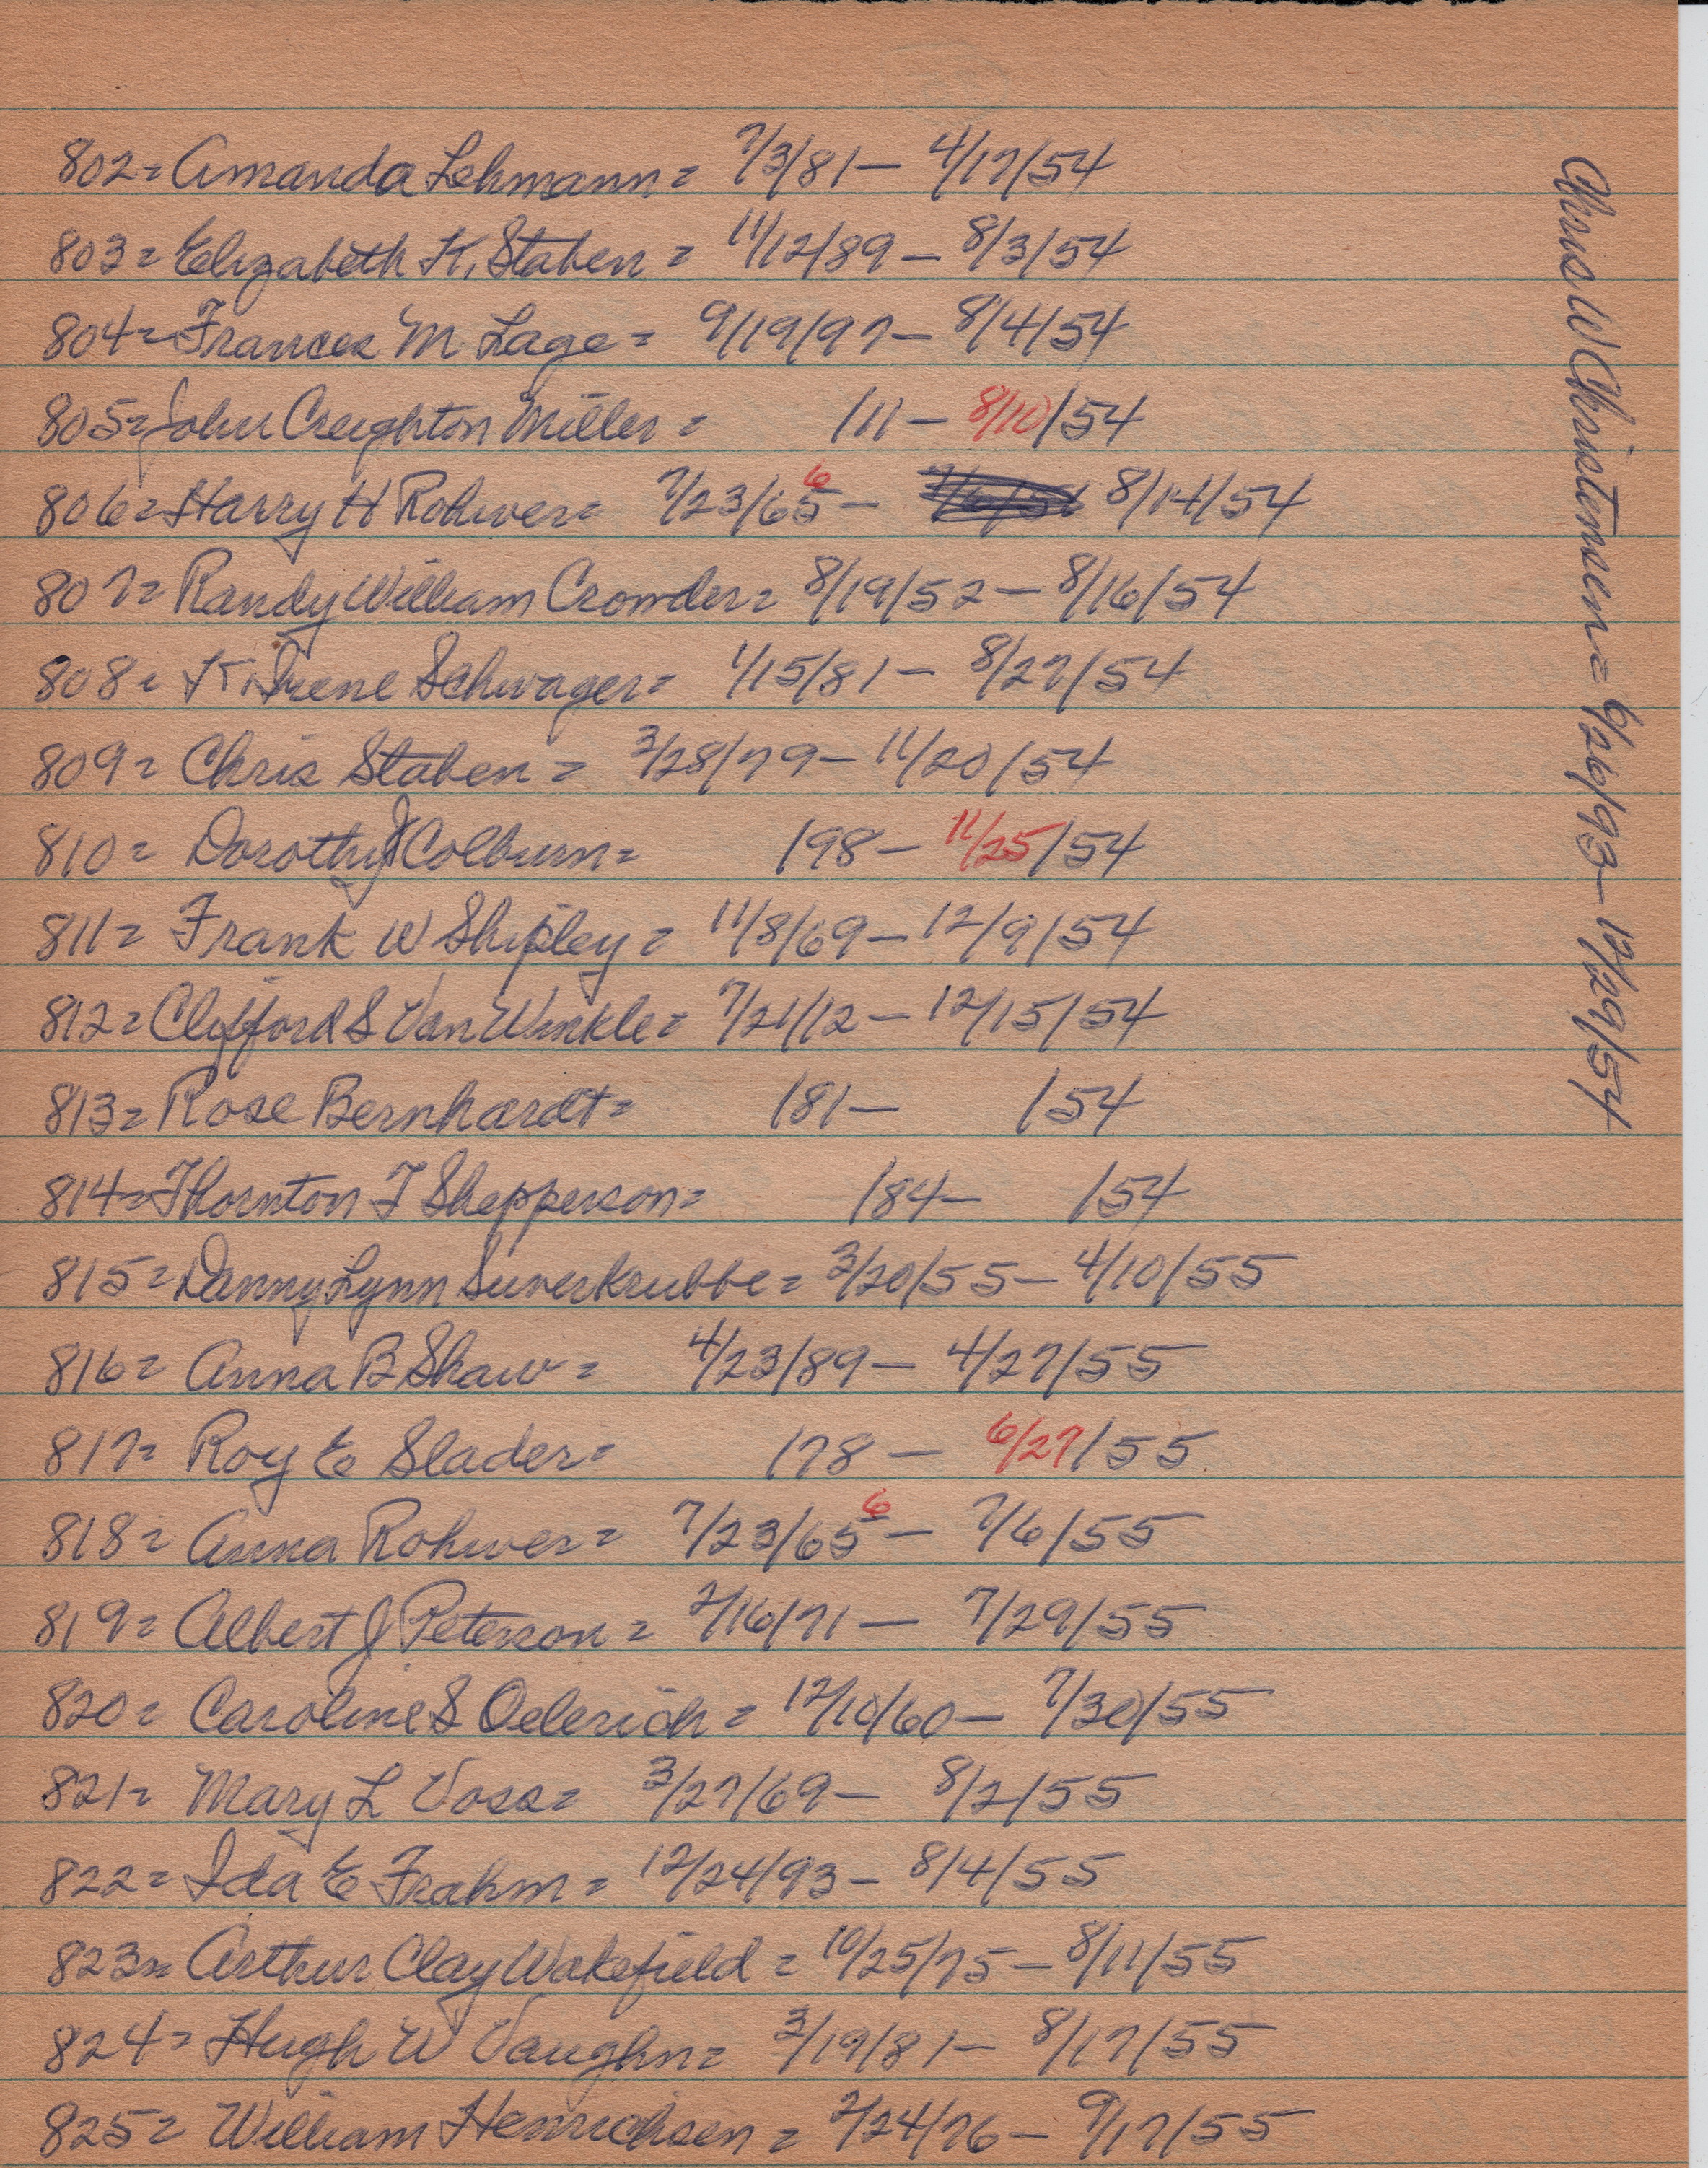 802= Amanda Lehmann= 7/3/81- 4/17/54
803= Elizabeth K. Staben= 11/12/89- 8/3/54
804= Frances M Lage= 9/19/97- 8/4/54
805= John Creighton Miller= /11- 8/10/54
806= Harry H Rohwer= 7/23/65 6 - 8/14/54
807= Randy William Crowder= 8/19/52- 8/16/54
808= K. Irene Schwager= 1/15/81- 8/27/54
809= Chris Staben= 3/28/79- 11/20/54
810= Dorothy J Colburn= /98- 11/25/54
811= Frank W Shipley= 11/8/69- 12/9/54
812= Clifford S Van Winkle= 7/21/12- 12/15/54
813= Rose Bernhardt= /81- /54
814= Thornton T Shepperson= /84- /54
815= Danny Lynn Suverkrubbe= 3/20/55- 4/10/55
816= Anna B Shaw= 4/23/89- 4/27/55
817= Roy E Slader= /78- 6/27/55
818= Anna Rohwer= 7/23/65 6 - 7/6/55
819= Albert J Peterson= 2/16/71- 7/29/55
820= Caroline S Oelerich= 12/10/60- 7/30/55
821= Mary L Voss= 3/27/69- 8/2/55
822= Ida E Frahm= 12/24/93- 8/4/55
823= Arthur Clay Wakefield= 10/25/75- 8/11/55
824= Hugh W Vaughn= 3/19/81- 8/17/55
825= William Henrichsen= 2/24/76- 9/17/55
Chris W Christensen= 6/26/93- 12/29/54